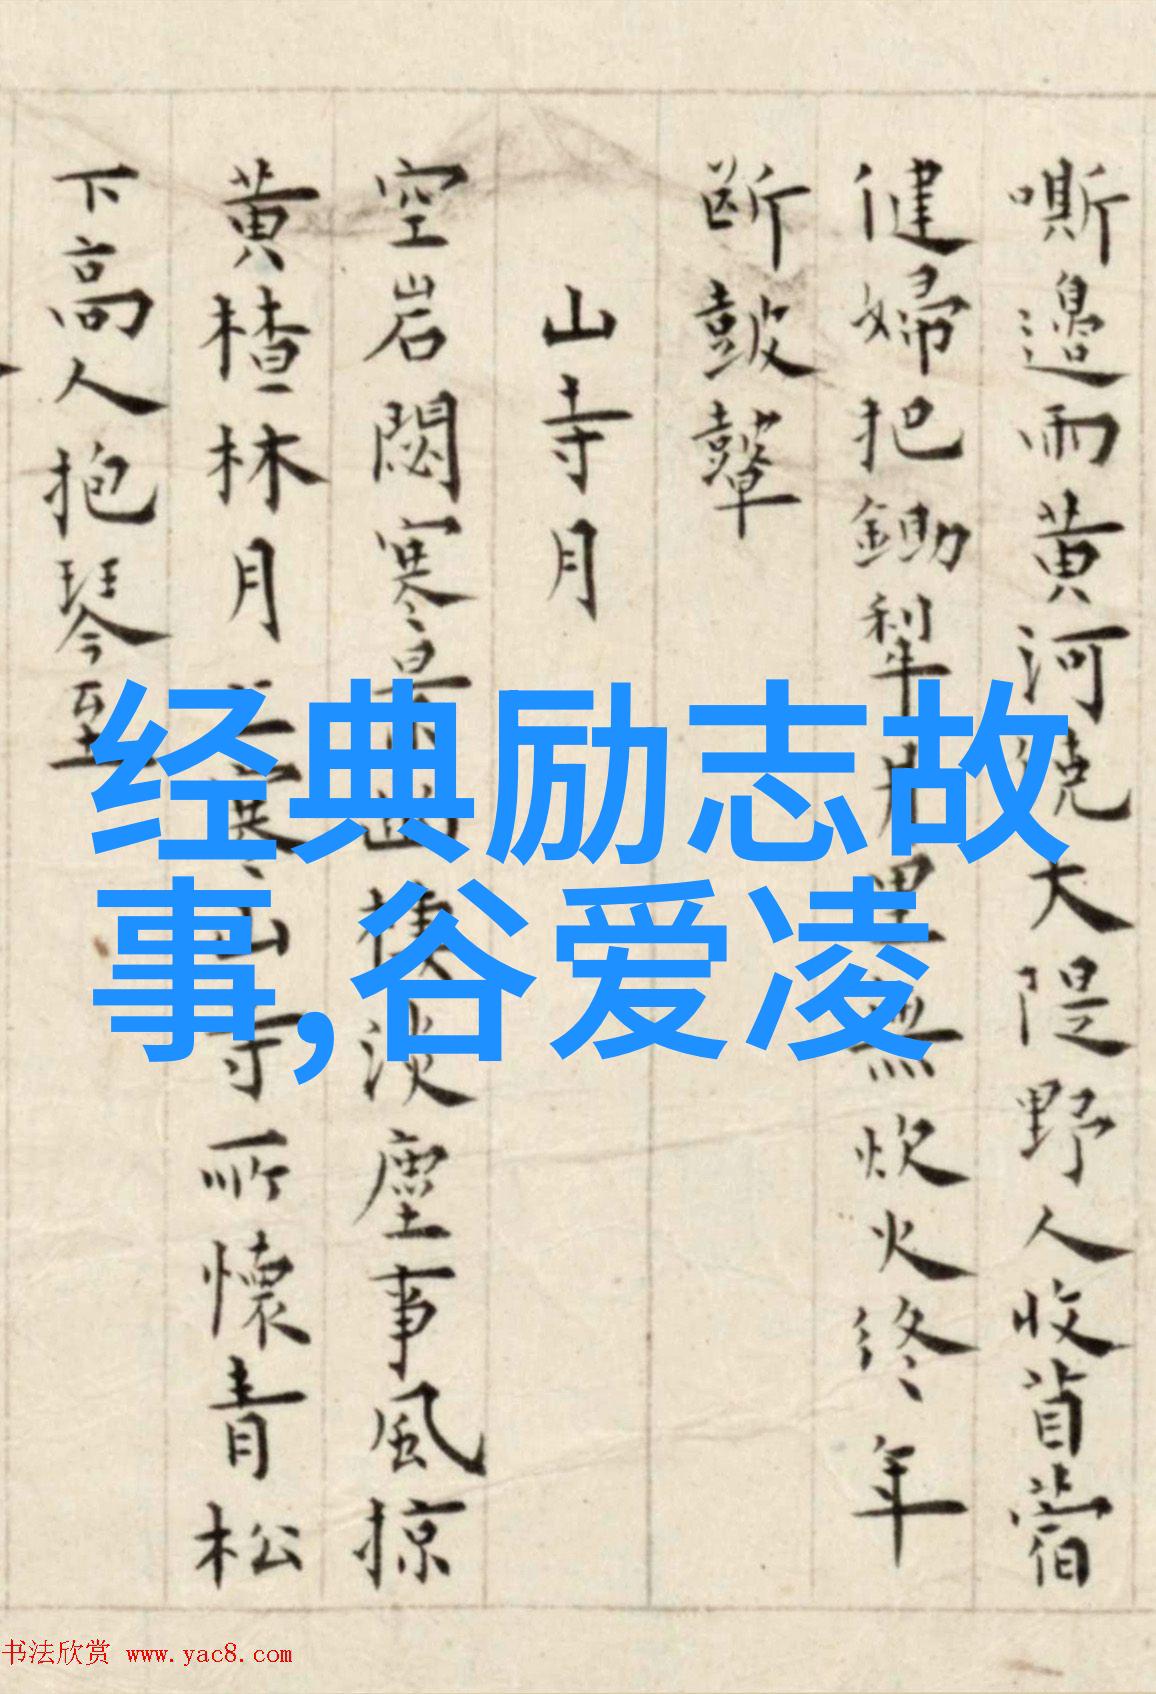 嘶邉雨黄河繞大隄野人收苜蓿
健婦把鋤犁
無炊火終年
斷鼓鼙
山寺月
空岩閟寒
淡塵事風掠
黄楂林月
寺所懷青松
下高人抱琴至
经典励志故
事,谷爱凌
书法欣赏 www.yac8.com